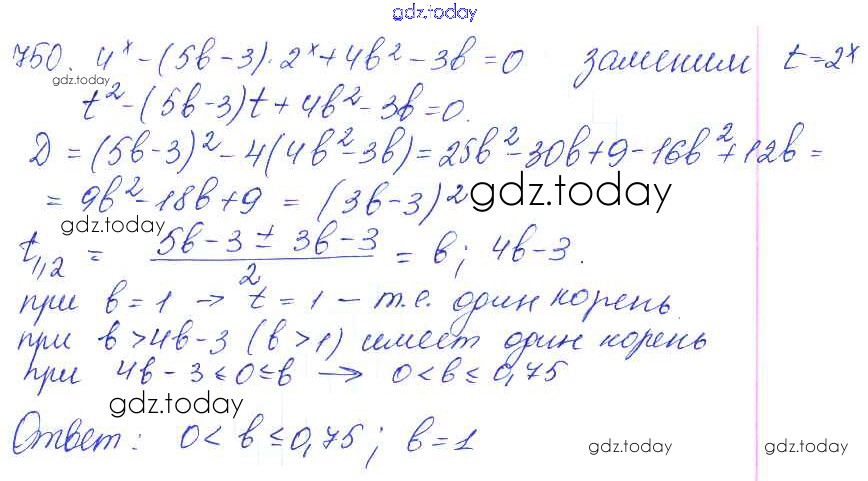 gdz.today
750. 4^x - (5b-3)·2^x + 4b² - 3b = 0 заменим t = 2^x
gdz.today
t² - (5b-3)t + 4b² - 3b = 0.
D = (5b-3)² - 4(4b² - 3b) = 25b² - 30b + 9 - 16b² + 12b =
= 9b² - 18b + 9 = (3b-3)² gdz.today
gdz.today
t₁,₂ = (5b-3 ± 3b-3)/2 = b; 4b-3.
при b = 1 → t = 1 - т.е. один корень
при b > 4b-3 (b > 1) имеет один корень
при 4b-3 ≤ 0 ≤ b → 0 < b ≤ 0,75
gdz.today
Ответ: 0 < b ≤ 0,75; b = 1
gdz.today gdz.today